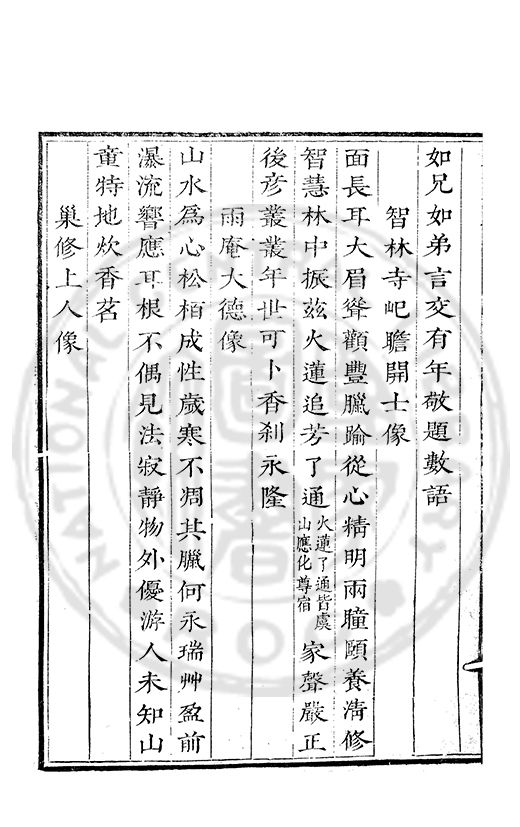 如兄如弟言交有年敬題數語
智林寺屺瞻開士像
面長耳大眉聳顴豐臘踰從心精明兩瞳頤養淸修
智慧林中振茲火蓮追芳了通火蓮了通皆虞山應化尊宿家聲嚴正
後彥叢叢年世可卜香剎永隆
雨庵大德像
山水爲心松栢成性歲寒不凋其臘何永瑞艸盈前
瀑流響應耳根不偶見法寂靜物外優游人未知山
童特地炊香茗
巢修上人像